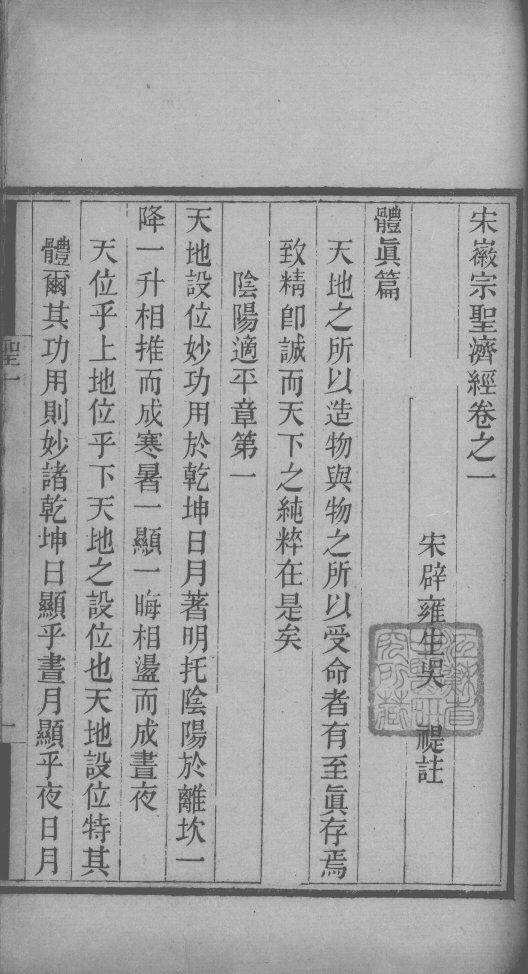 宋徽宗聖濟經卷之一
宋辟雍生吳 禔註
體眞篇
天地之所以造物與物之所以受命者有至眞存焉
致精卽誠而天下之純粹在是矣
陰陽適平章第一
天地設位妙功用於乾坤日月著明托陰陽於離坎一
降一升相推而成寒暑一顯一晦相盪而成晝夜
天位乎上地位乎下天地之設位也天地設位特其
體爾其功用則妙諸乾坤日顯乎晝月顯乎夜日月
聖一
一